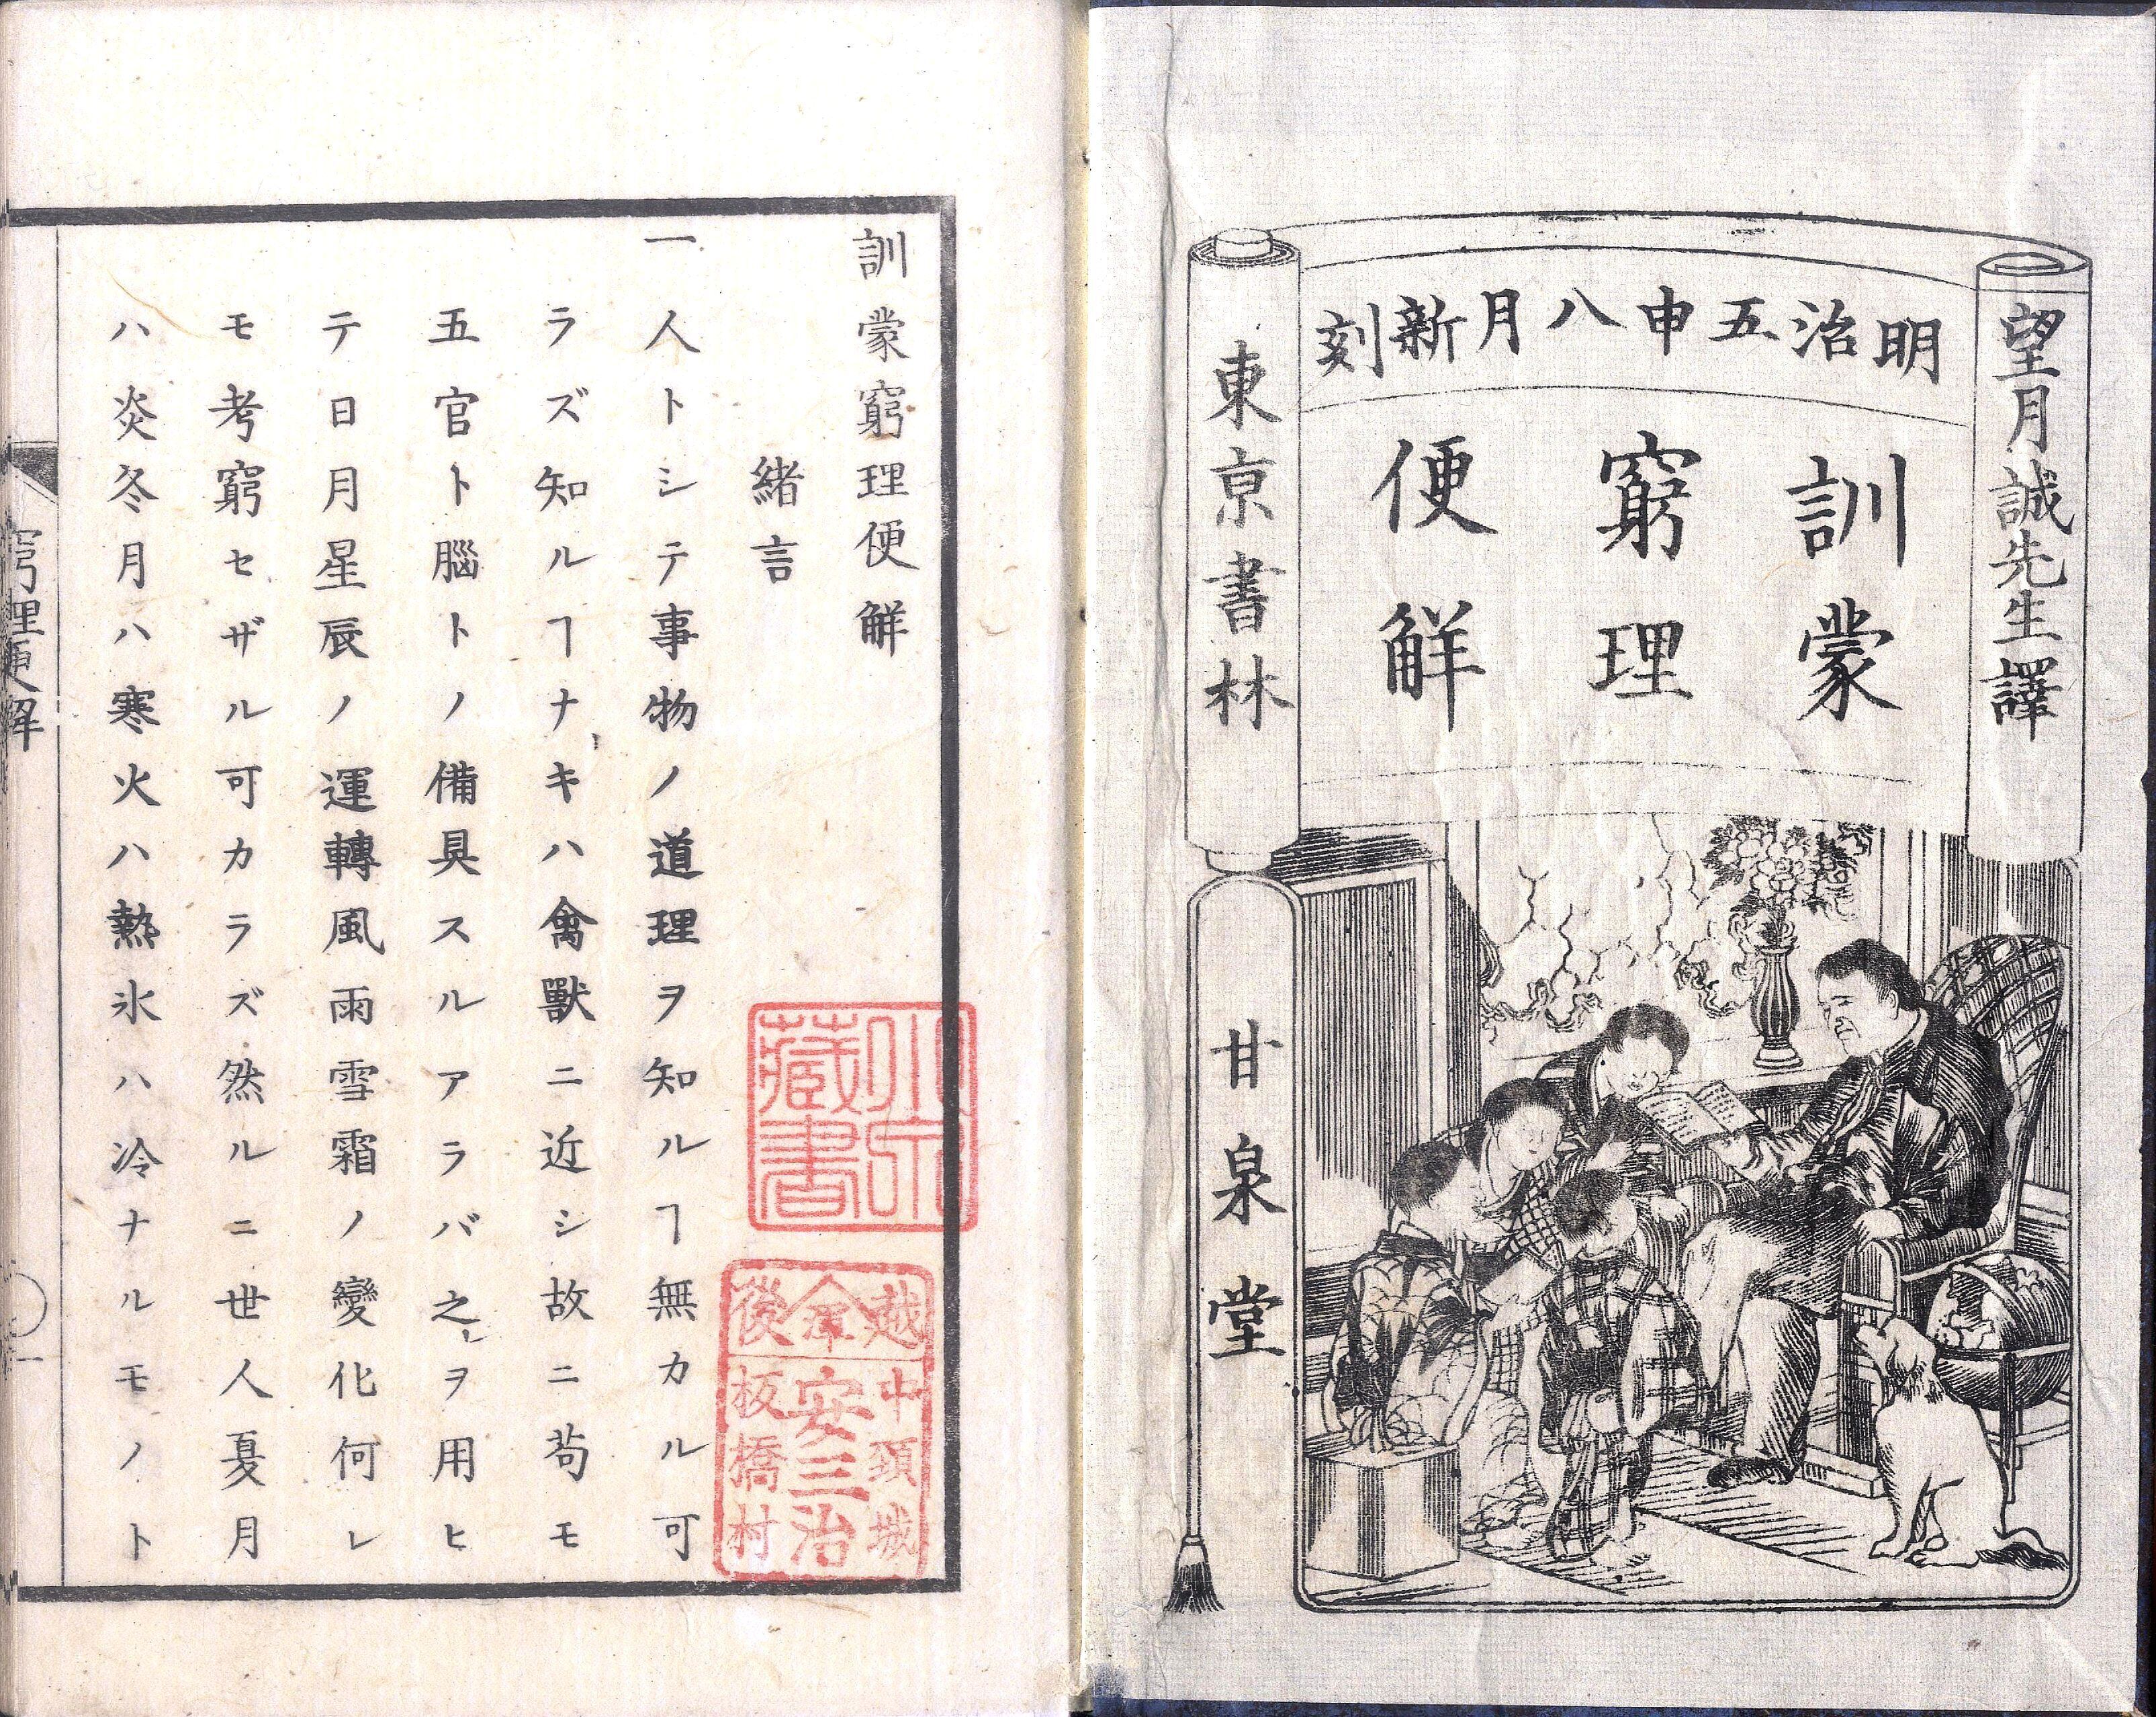 望月誠先生譯
明治五申八月新刻
訓蒙
窮理
便解
東京書林
甘泉堂
訓蒙窮理便解
緒言
一人トシテ事物ノ道理ヲ知ルヿ無カル可
ラズ知ルヿナキハ禽獸ニ近シ故ニ苟モ
五官ト腦トノ備具スルアラバ之ヲ用ヒ
テ日月星辰ノ運轉風雨雪霜ノ變化何レ
モ考窮セザル可カラズ然ルニ世人夏月
ハ炎冬月ハ寒火ハ熱氷ハ冷ナルモノト
藏書
越中頸城
安三治
後板橋村
窮理便解
一